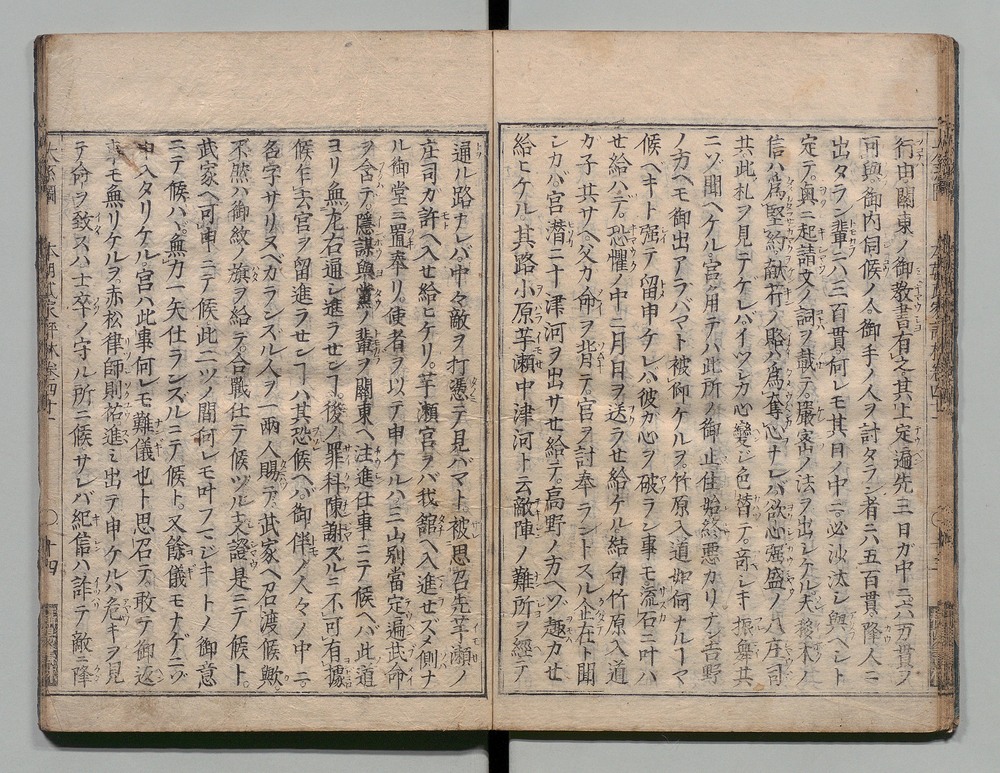 行田關東ノ御教書有之其上定遍先三日ガ中ニ六万貫ヲ
可與御内伺候ノ人御手ノ人ヲ討タラン者ニ六五百貫降人ニ
出タラン輩ニハ三百貫何レモ其日ノ中ニ必沙汰シ與ベシト
定テ奥ニ起請文ノ詞ヲ載テ嚴密ノ法ヲ出シケル夫移木ノ
信ハ爲堅約獻芹ノ賂ハ爲奪心ナレバ欲心强盛ノ八庄司
共此札ヲ見テケレバイツシカ心變ジ色替テ奇シキ振舞共
ニゾ聞ヘケル宮角テハ此所ノ御止住始終悪カリナン吉野
ノ方ヘモ御出アラバヤト被仰ケルヲ竹原入道如何ナルーマ
候ベキト强テ留申ケレバ彼カ心ヲ破ラン事モ流石ニ叶ハ
セ給ハデ恐懼ノ中ニ月日ヲ送ラせ給ケル結句竹原入道
カ子共サヘ父カ命ヲ背テ宮ヲ討奉ラントスル企在ト聞
シカバ宮潜ニ十津河ヲ出サセ給テ高野ノ方ヘゾ趣カせ
給ヒケル其路小原芋瀬中津河ト云敵陣ノ難所ヲ經テ
通ル路ナレバ中々敵ヲ打憑テ見バヤト被思召先芋瀬ノ
庄司ガ許ヘ入せ給ヒケリ芋瀬宮ヲバ我舘ヘ入進せズメ側ナ
ル御堂ニ置奉リ使者ヲ以テ申ケルハ三山別當定遍武命
ヲ含テ隱謀與黨ノ輩ヲ關東ヘ注進仕事ニテ候ヘバ此道
ヨリ無左右通シ進ラセンー後ノ罪科陳謝スルニ不可有據
候乍去宮ヲ留進ラせンーハ其恐候ヘバ御伴ノ人々ノ中ニ
名字サリヌベカランズル人ヲ一兩人賜テ武家ヘ召渡候歟
不然ハ御紋ノ旗ヲ給テ合戰仕テ候ツル支證是ニテ候ト
武家ヘ可申ニテ候此二ツノ間何レモ叶フマジキトノ御意
ニテ候ハヾ無力一矢仕ランズルニテ候ト又餘儀モナゲニゾ
申入タリケル宮ハ此事何レモ難儀也ト思召テ敢テ御返
事モ無リケルヲ赤松律師則祐進ミ出テ申ケルハ危キヲ見
テ命ヲ致スハ士卒ノ守ル所ニ候サレバ紀信ハ詐テ敵ニ降